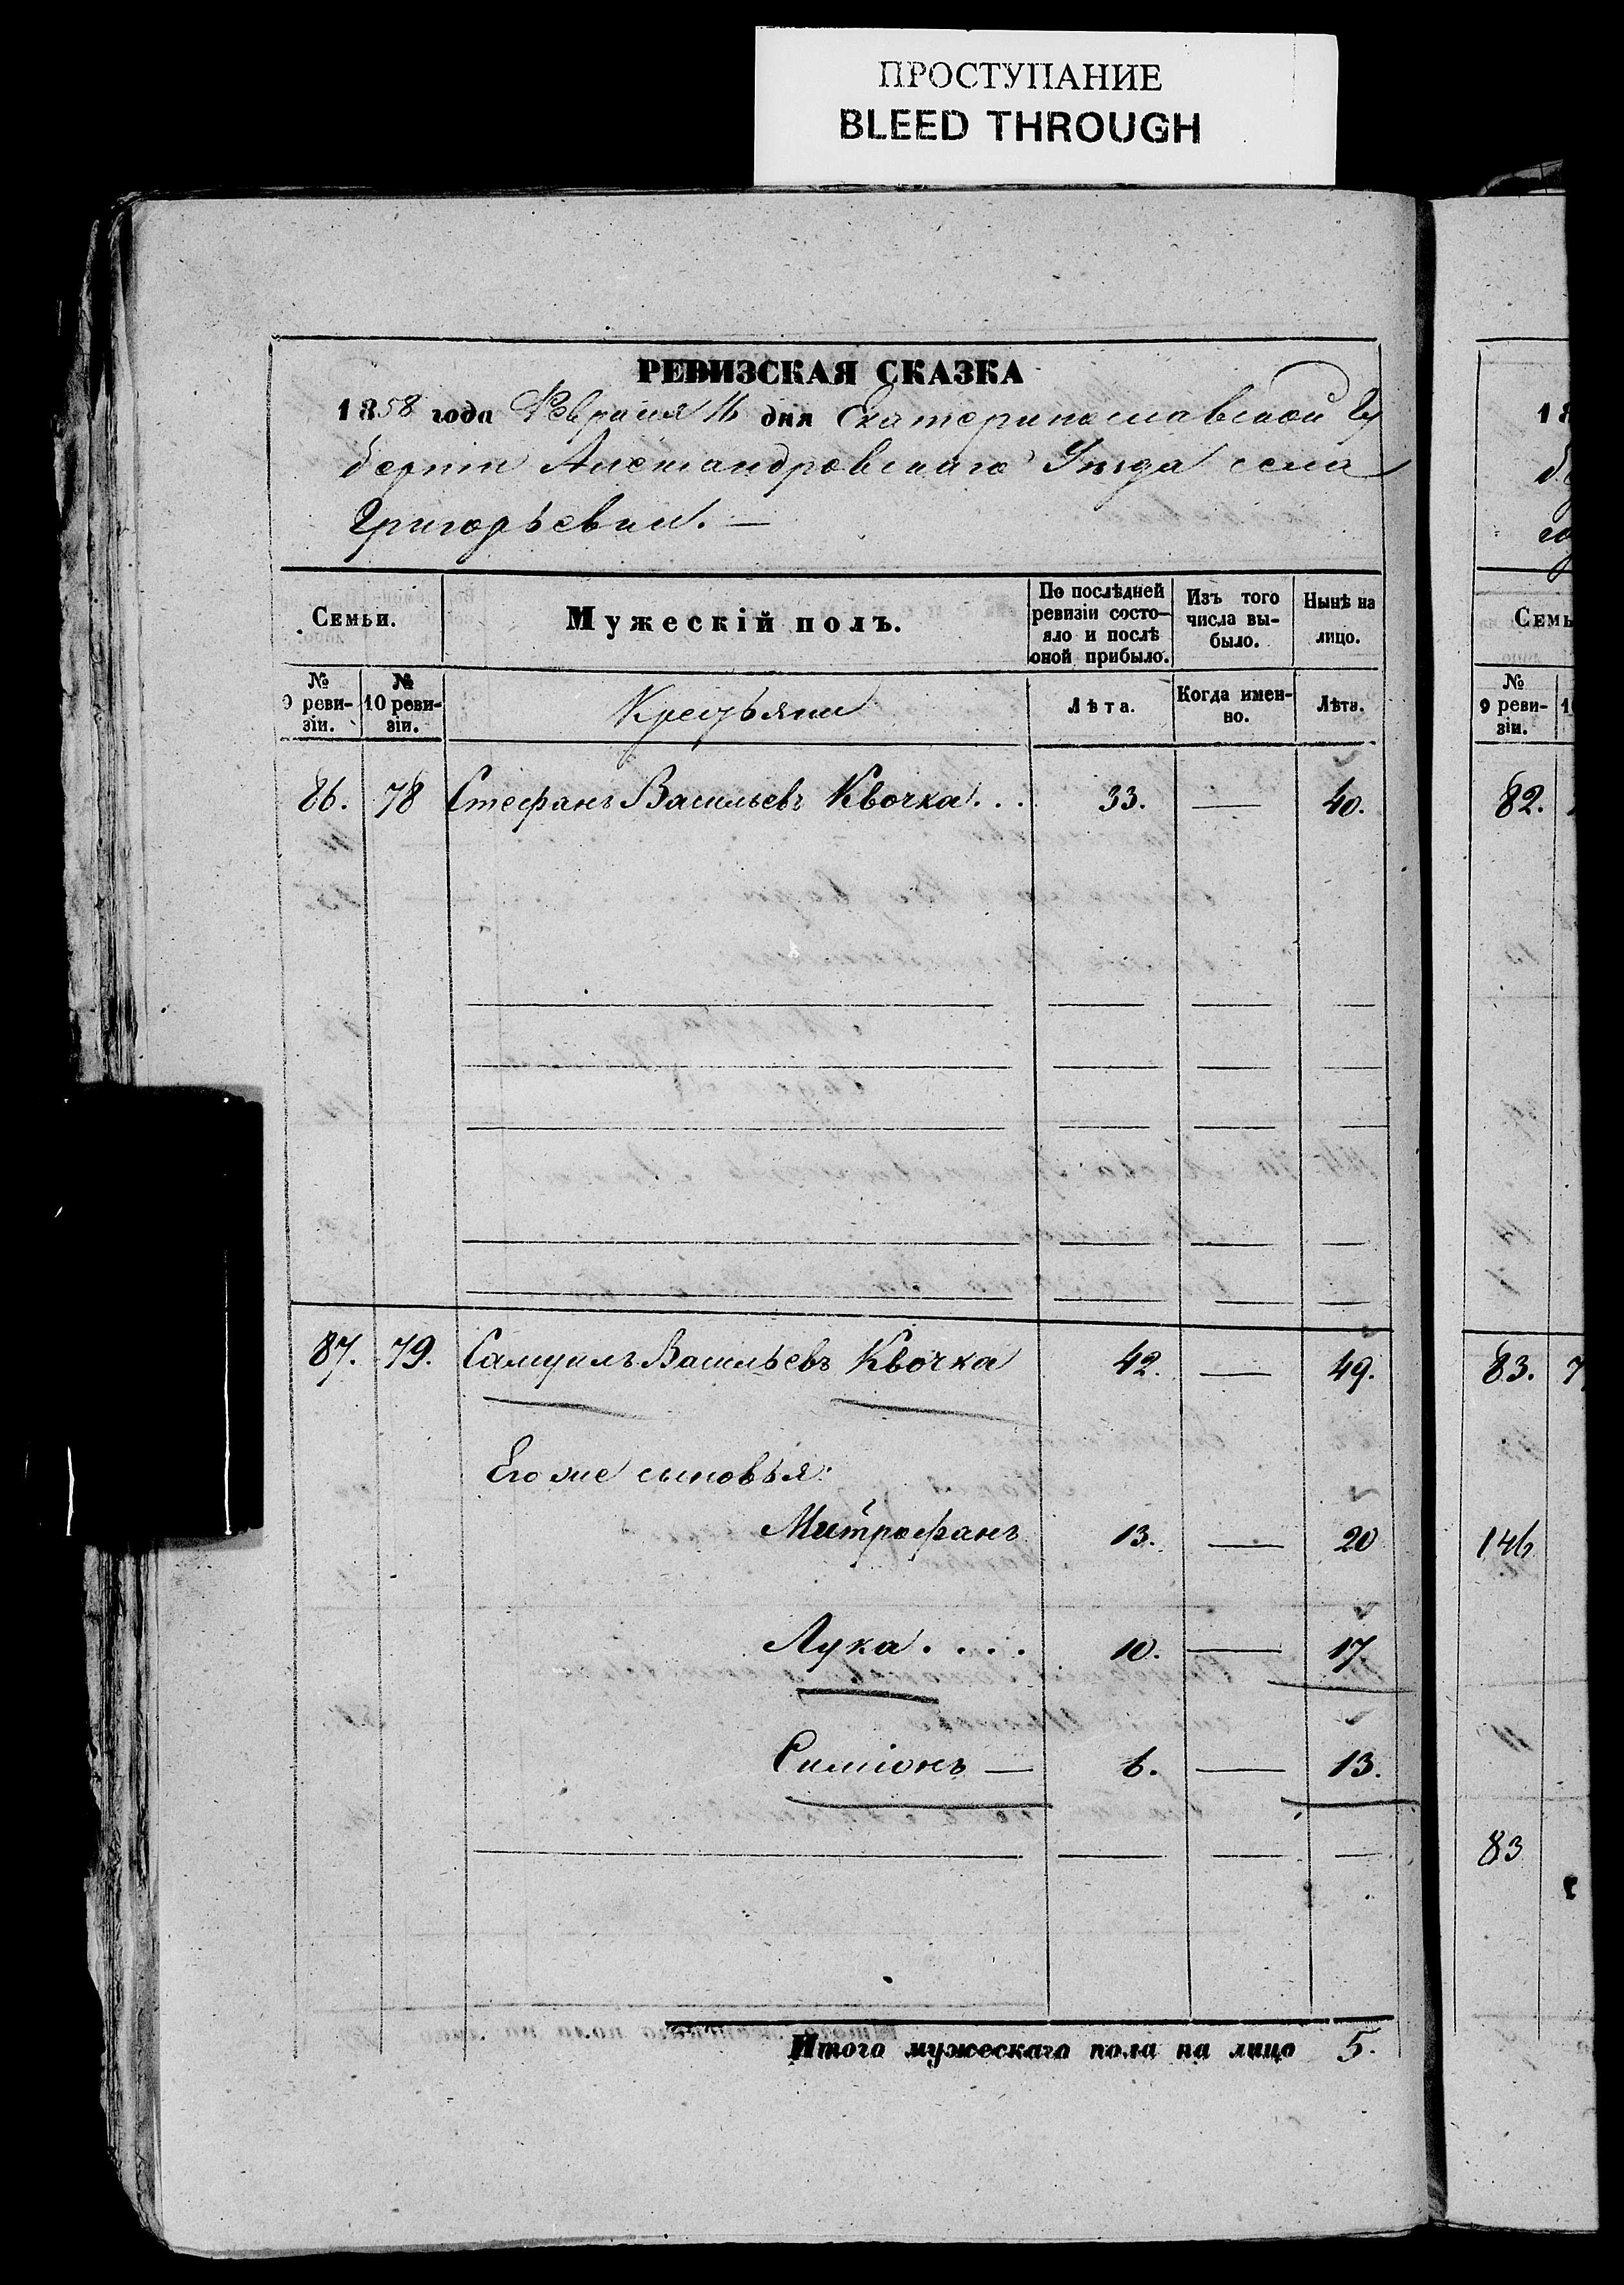 ПРОСТУПАНИЕ
BLEED THROUGH
РЕВИЗСКАЯ СКАЗКА
1858 года Февраля 16 дня Екатеринославской Гу
берніи Александровскаго Уѣзда села
Григорьевки. —
Семьи.
Мужескій полъ.
По послѣдней ревизіи состо-яло и послѣ оной прибыло.
Изъ того числа вы-было.
Нынѣ на лицо.
№ 9 реви-зіи.
№ 10 реви-зіи.
Крестьяне
Лѣта.
Когда имен-но.
Лѣта.
86. 78 Стефанъ Васильевъ Квочка... 33. — 40.
87. 79. Самуилъ Васильевъ Квочка 42. — 49.
Его же сыновья:
Митрофанъ 13. — 20
Лука.... 10. — 17
Симіонъ — 6. — 13.
Итого мужескаго пола на лицо 5.
18
Семь
№ 9 реви-зіи.
82.
83. 7
146
83